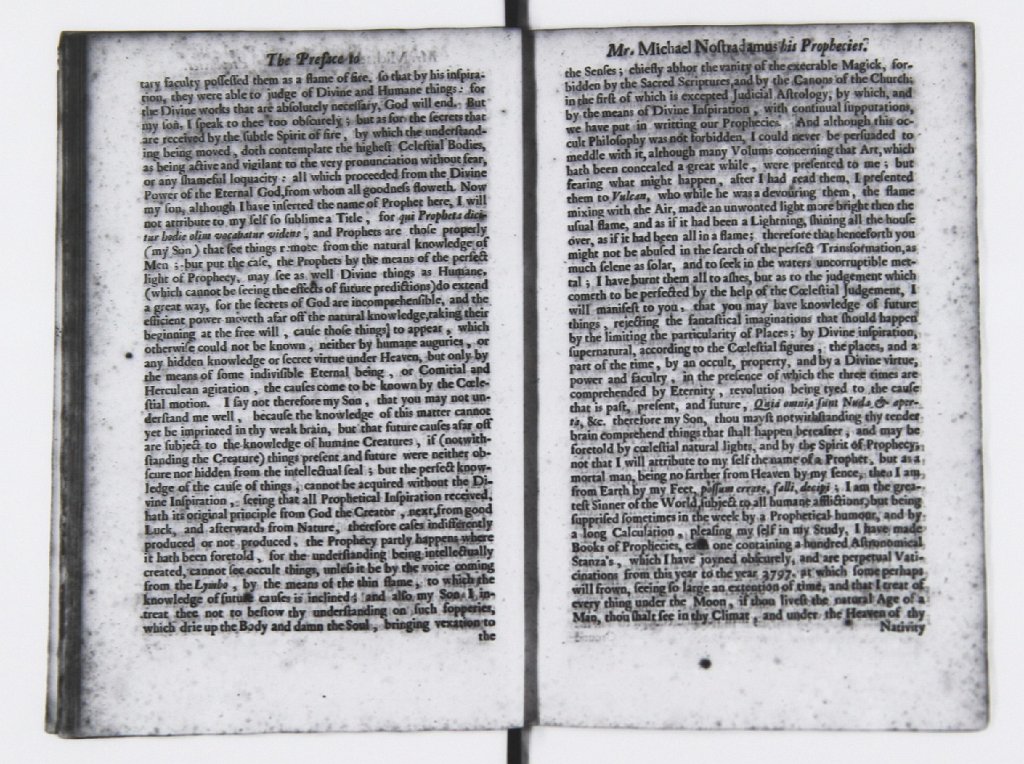 The Preface to
tary faculty poſſeſſed them as a flame of fire, ſo that by his inſpira-
tion, they were able to judge of Divine and Humane things: for
the Divine works that are abſolutely neceſſary, God will end. But
my ſon, I ſpeak to thee too obſcurely; but as for the ſecrets that
are received by the ſubtle Spirit of fire, by which the underſtand-
ing being moved, doth contemplate the higheſt Celeſtial Bodies,
as being active and vigilant to the very pronunciation without fear,
or any ſhameful loquacity: all which proceeded from the Divine
Power of the Eternal God, from whom all goodneſs floweth. Now
my ſon, although I have inſerted the name of Prophet here, I will
not attribute to my ſelf ſo ſublime a Title, for qui Propheta dici-
tur hodie olim vocabatur videns, and Prophets are thoſe properly
(my Son) that ſee things remote from the natural knowledge of
Men; but put the caſe, the Prophets by the means of the perfect
light of Prophecy, may ſee as well Divine things as Humane,
(which cannot be ſeeing the effects of future predictions) do extend
a great way, for the ſecrets of God are incomprehenſible, and the
efficient power moveth afar off the natural knowledge, taking their
beginning at the free will, cauſe thoſe things to appear, which
otherwiſe could not be known, neither by humane auguries, or
any hidden knowledge or ſecret virtue under Heaven, but only by
the means of ſome indiviſible Eternal being, or Comitial and
Herculean agitation, the cauſes come to be known by the Cœle-
ſtial motion. I ſay not therefore my Son, that you may not un-
derſtand me well, becauſe the knowledge of this matter cannot
yet be imprinted in thy weak brain, but that future cauſes afar off
are ſubject to the knowledge of humane Creatures, if (notwith-
ſtanding the Creature) things preſent and future were neither ob-
ſcure nor hidden from the intellectual ſeal; but the perfect know-
ledge of the cauſe of things, cannot be acquired without the Di-
vine Inſpiration, ſeeing that all Prophetical Inſpiration received,
hath its original principle from God the Creator, next, from good
Luck, and afterwards from Nature, therefore caſes indifferently
produced or not produced, the Prophecy partly happens where
it hath been foretold, for the underſtanding being intellectually
created, cannot ſee occult things, unleſs it be by the voice coming
from the Lymbo, by the means of the thin flame, to which the
knowledge of future cauſes is inclined; and alſo my Son I in-
treat thee not to beſtow thy underſtanding on ſuch fopperies,
which drie up the Body and damn the Soul, bringing vexation to
the
Mr. Michael Noſtradamus his Prophecies.
the Senſes; chiefly abhor the vanity of the execrable Magick, for-
bidden by the Sacred Scriptures, and by the Canons of the Church;
in the firſt of which is excepted Judicial Aſtrology, by which, and
by the means of Divine Inſpiration, with continual ſupputations,
we have put in writting our Prophecies. And although this oc-
cult Philoſophy was not forbidden, I could never be perſuaded to
meddle with it, although many Volums concerning that Art, which
hath been concealed a great while, were preſented to me; but
fearing what might happen, after I had read them, I preſented
them to Vulcan, who while he was a devouring them, the flame
mixing with the Air, made an unwonted light more bright then the
uſual flame, and as if it had been a Lightning, ſhining all the houſe
over, as if it had been all in a flame; therefore that henceforth you
might not be abuſed in the ſearch of the perfect Transformation, as
much ſelene as ſolar, and to ſeek in the waters uncorruptible met-
tal; I have burnt them all to aſhes, but as to the judgement which
cometh to be perfected by the help of the Cœleſtial Judgement, I
will manifeſt to you, that you may have knowledge of future
things, rejecting the fantaſtical imaginations that ſhould happen
by the limiting the particularity of Places; by Divine inſpiration,
ſupernatural, according to the Cœleſtial figures; the places, and a
part of the time, by an occult, property, and by a Divine virtue,
power and faculty, in the preſence of which the three times are
comprehended by Eternity, revolution being tyed to the cauſe
that is paſt, preſent, and future, Quia omnia ſunt Nuda & aper-
ta, &c. therefore my Son, thou mayſt notwithſtanding thy tender
brain comprehend things that ſhall happen hereafter, and may be
foretold by cœleſtial natural lights, and by the Spirit of Prophecy;
not that I will attribute to my ſelf the name of a Prophet, but as a
mortal man, being no farther from Heaven by my ſence, then I am
from Earth by my Feet, poſſum errare, falli, decipi; I am the grea-
teſt Sinner of the World, ſubject to all humane afflictions, but being
ſuppriſed ſometimes in the week by a Prophetical humour, and by
a long Calculation, pleaſing my ſelf in my Study, I have made
Books of Prophecies, each one containing a hundred Aſtronomical
Stanza's, which I have joyned obſcurely, and are perpetual Vati-
cinations from this year to the year 3797. at which ſome perhaps
will frown, ſeeing ſo large an extention of time, and that I treat of
every thing under the Moon, if thou liveſt the natural Age of a
Man, thou ſhalt ſee in thy Climat, and under the Heaven of thy
Nativity